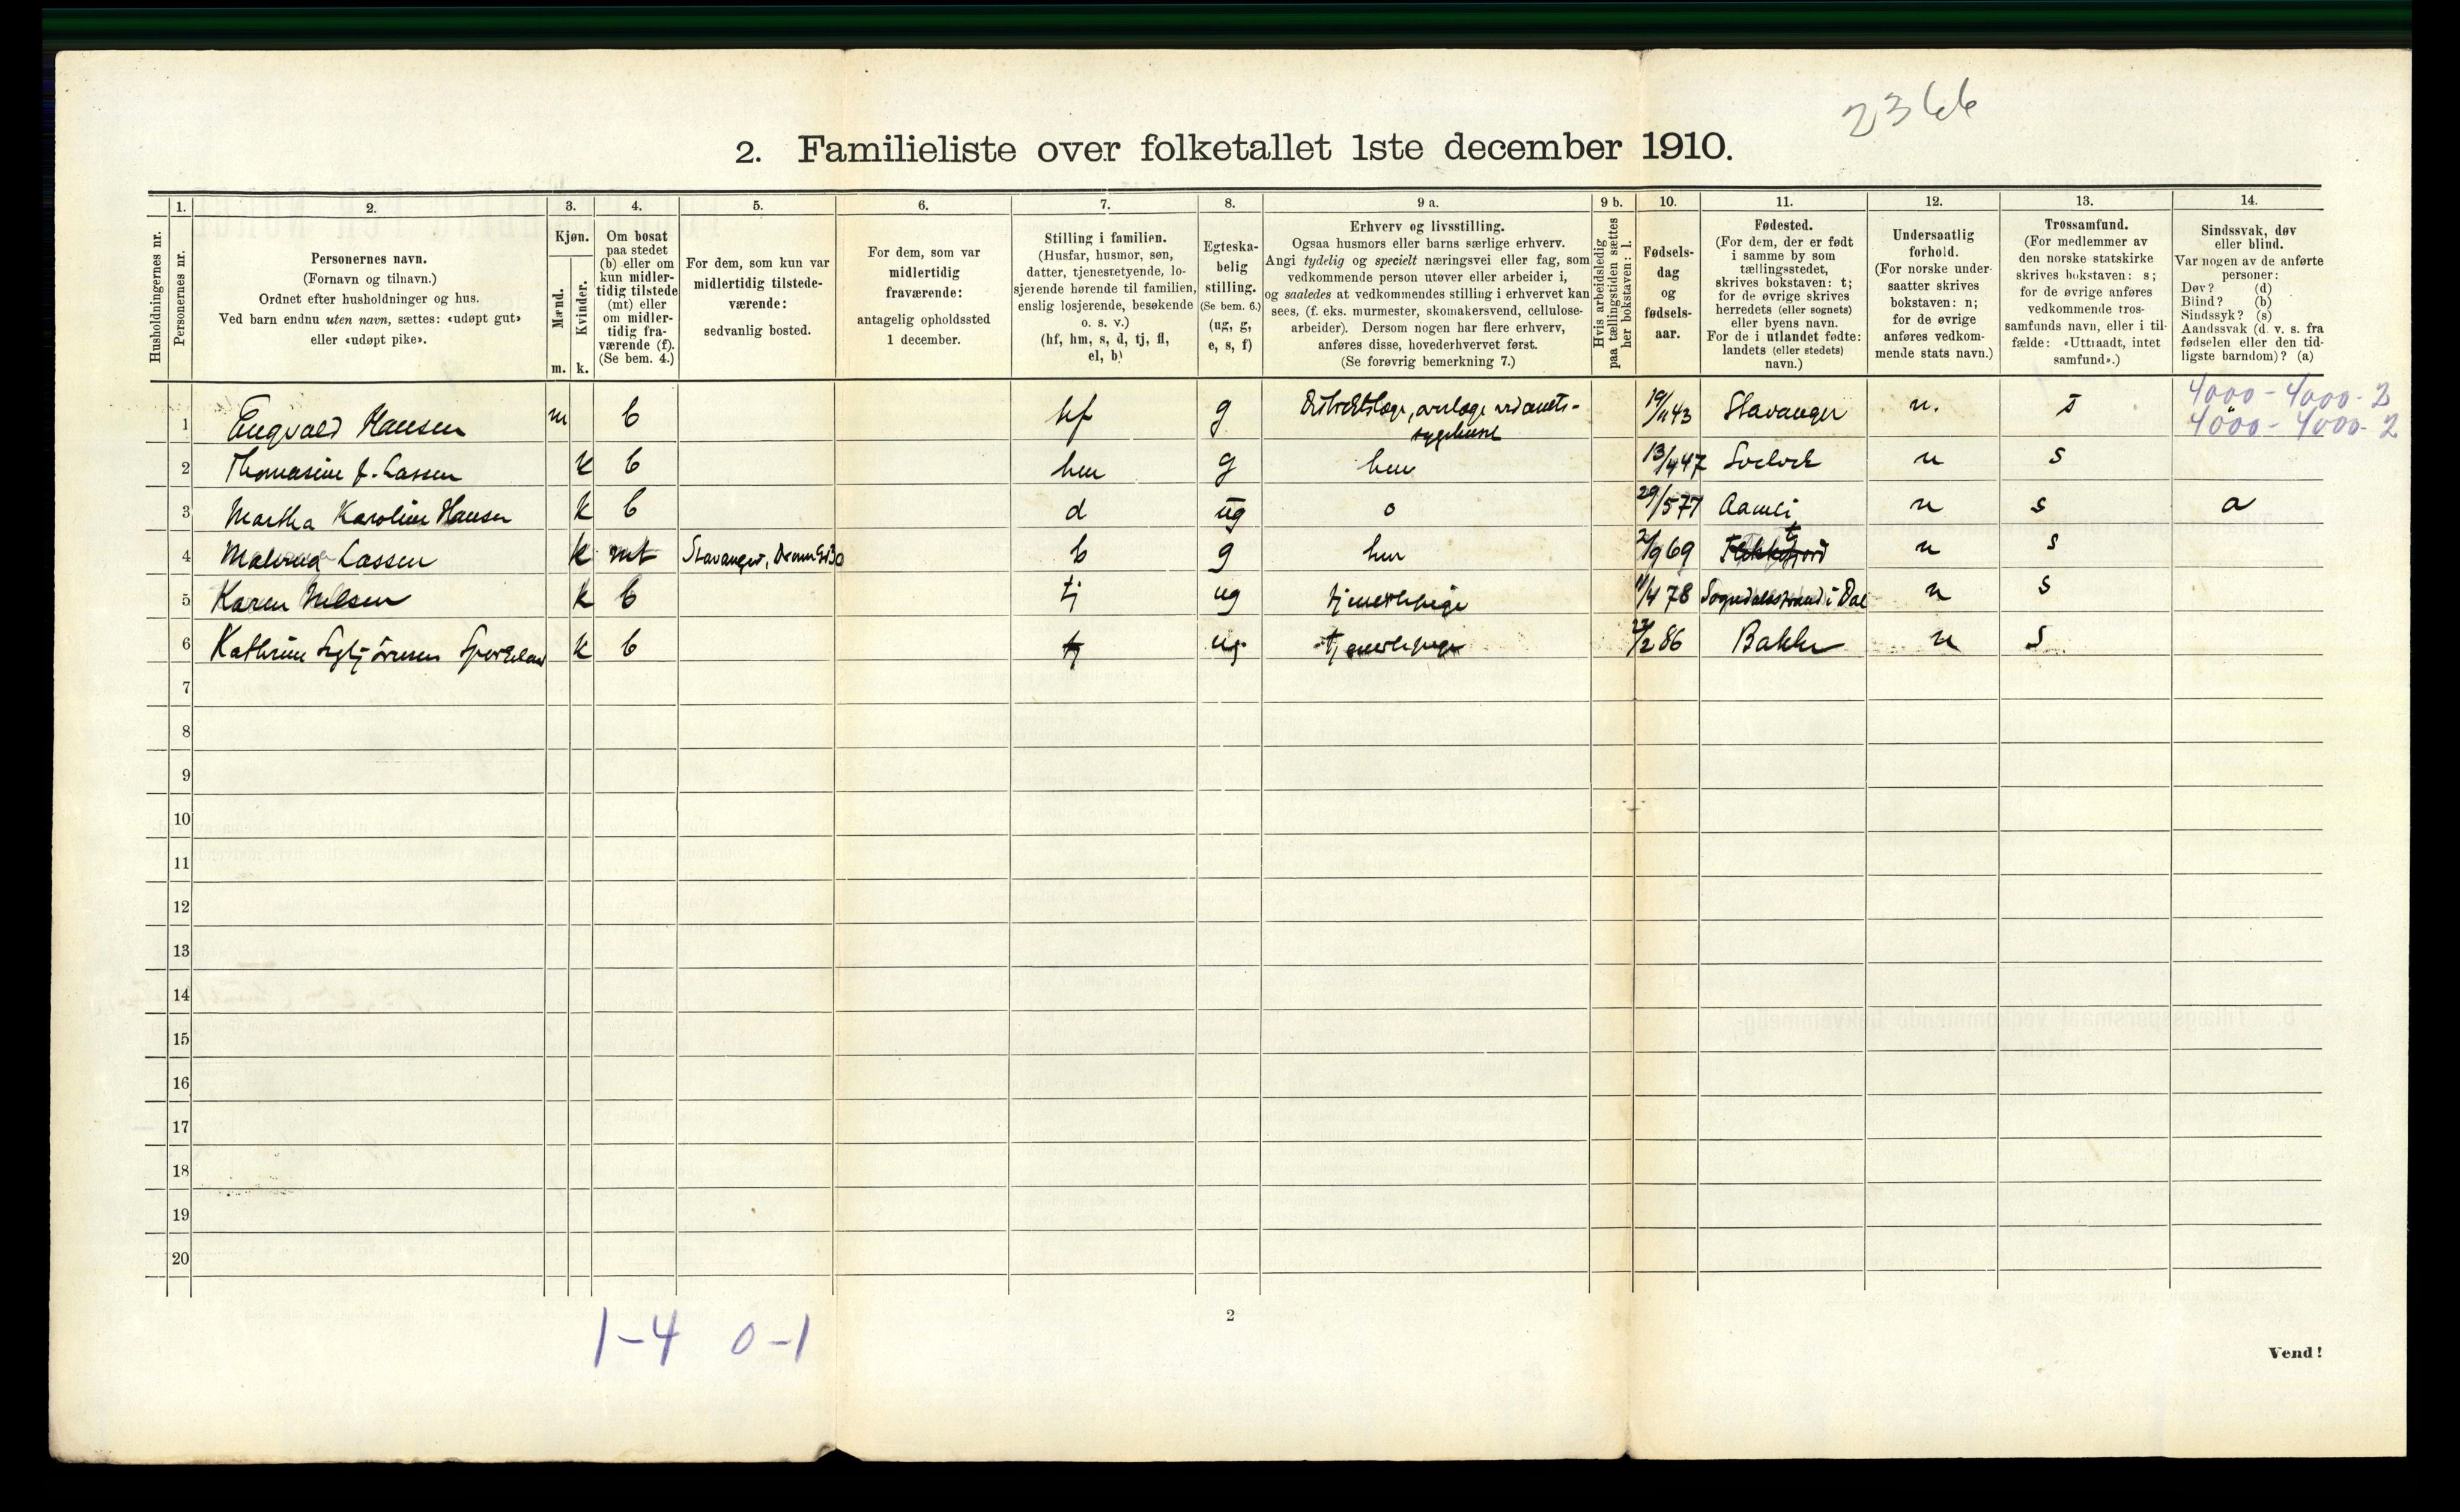 2366
2. Familieliste over folketallet 1ste december 1910.
Husholdningernes nr.
1.
Personernes nr.
2.
Personernes navn.
(Fornavn og tilnavn.)
Ordnet efter husholdninger og hus.
Ved barn endnu uten navn, sættes: «udøpt gut»
eller «udøpt pike».
3.
Kjøn.
Mænd.
Kvinder.
m. k.
4.
Om bosat
paa stedet
(b) eller om
kun midler-
tidig tilstede
(mt) eller
om midler-
tidig fra-
værende (f).
(Se bem. 4.)
5.
For dem, som kun var
midlertidig tilstede-
værende:
sedvanlig bosted.
6.
For dem, som var
midlertidig
fraværende:
antagelig opholdssted
1 december.
7.
Stilling i familien.
(Husfar, husmor, søn,
datter, tjenestetyende, lo-
sjerende hørende til familien,
enslig losjerende, besøkende
o. s. v.)
(hf, hm, s, d, tj, fl,
el, b)
8.
Egteska-
belig
stilling.
(Se bem. 6.)
(ug, g,
e, s, f)
9 a.
Erhverv og livsstilling.
Ogsaa husmors eller barns særlige erhverv.
Angi tydelig og specielt næringsvei eller fag, som
vedkommende person utøver eller arbeider i,
og saaledes at vedkommendes stilling i erhvervet kan
sees, (f. eks. murmester, skomakersvend, cellulose-
arbeider). Dersom nogen har flere erhverv,
anføres disse, hovederhvervet først.
(Se forøvrig bemerkning 7.)
9 b.
Hvis arbeidsledig
paa tællingstiden sættes
her bokstaven: l.
10.
Fødsels-
dag
og
fødsels-
aar.
11.
Fødested.
(For dem, der er født
i samme by som
tællingsstedet,
skrives bokstaven: t;
for de øvrige skrives
herredets (eller sognets)
eller byens navn.
For de i utlandet fødte:
landets (eller stedets)
navn.)
12.
Undersaatlig
forhold.
(For norske under-
saatter skrives
bokstaven: n;
for de øvrige
anføres vedkom-
mende stats navn.)
13.
Trossamfund.
(For medlemmer av
den norske statskirke
skrives bokstaven: s;
for de øvrige anføres
vedkommende tros-
samfunds navn, eller i til-
fælde: «Uttraadt, intet
samfund».)
14.
Sindssvak, døv
eller blind.
Var nogen av de anførte
personer:
Døv? (d)
Blind? (b)
Sindssyk? (s)
Aandssvak (d. v. s. fra
fødselen eller den tid-
ligste barndom)? (a)
4000-4000-2
1 Engvald Hansen m b hf g Distriktslæge, overlæge ved amts- 19/11 43 Stavanger n. s 4000-4000-2
sygehuset
2 Thomasine f. Lassen k b hm g hm 13/4 47 n s
3 Martha Karoline Hansen k b d ug o 29/5 77 Aamli n s a
4 Lassen k mt Stavanger, b g hm 2/9 69 Flekkefjord t n s
5 Karen Nilsen k b tj ug tjenestepige 11/4 78 Sogndalsstrand i Dal n s
6 Kathrine k b tj ug tjenestepige 27/2 86 Bakke n s
7
8
9
10
11
12
13
14
15
16
17
18
19
20
1-4 0-1
2
Vend!